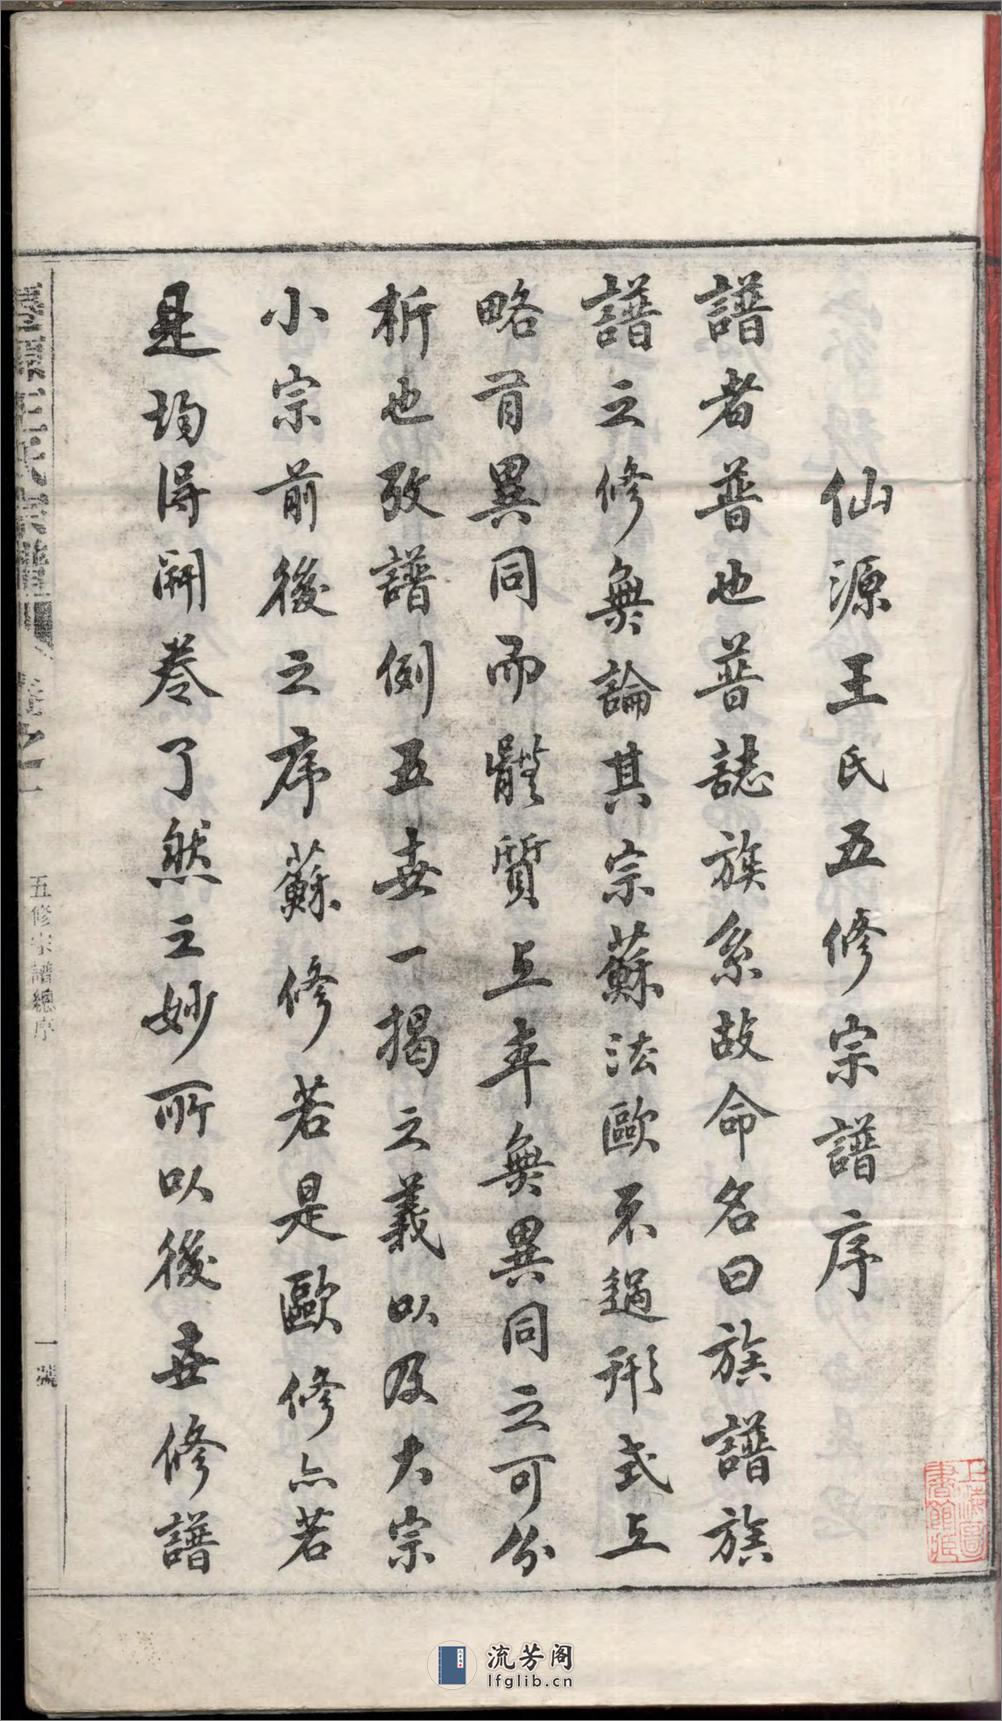 仙源王氏五修宗譜序
譜者普也普誌族系故命名曰族譜族
譜之修無論其宗蘇法歐不過形式上
略有異同而體質上卒無異同之可分
析也攷譜例五世一揭之義以及大宗
小宗前後之序蘇修若是歐修亦若
是均得開卷了然之妙所以後世修譜
源王氏宗譜
卷之一
五修宗譜總序
一號
上海圖書館藏
流芳阁
lfglib.cn